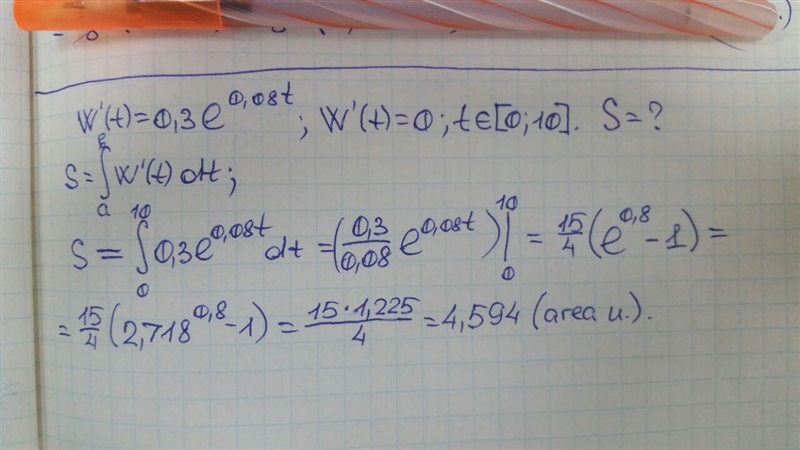 W'(t)=0,3e^0,08t; W'(t)=0; t∈[0;10]. S=?
S=∫_a^в W'(t) dt;
S=∫_0^10 0,3e^0,08t dt=(0,3/0,08 e^0,08t)|_0^10 = 15/4(e^0,8-1)=
=15/4(2,718^0,8-1)=15·1,225/4=4,594 (area u.).